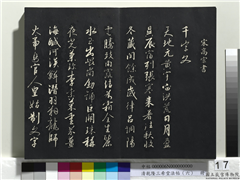 宋高宗書
千字文
天地玄黃宇宙洪荒日月盈
昃辰宿列張寒來暑往秋收
冬藏閏餘成歲律呂調陽
雲騰致雨露結為霜金生麗
水玉出崑岡劍號巨闕珠稱
夜光菓珍李柰菜重芥薑
海鹹河淡鱗潛羽翔龍師
火帝鳥官人皇始制文字
17